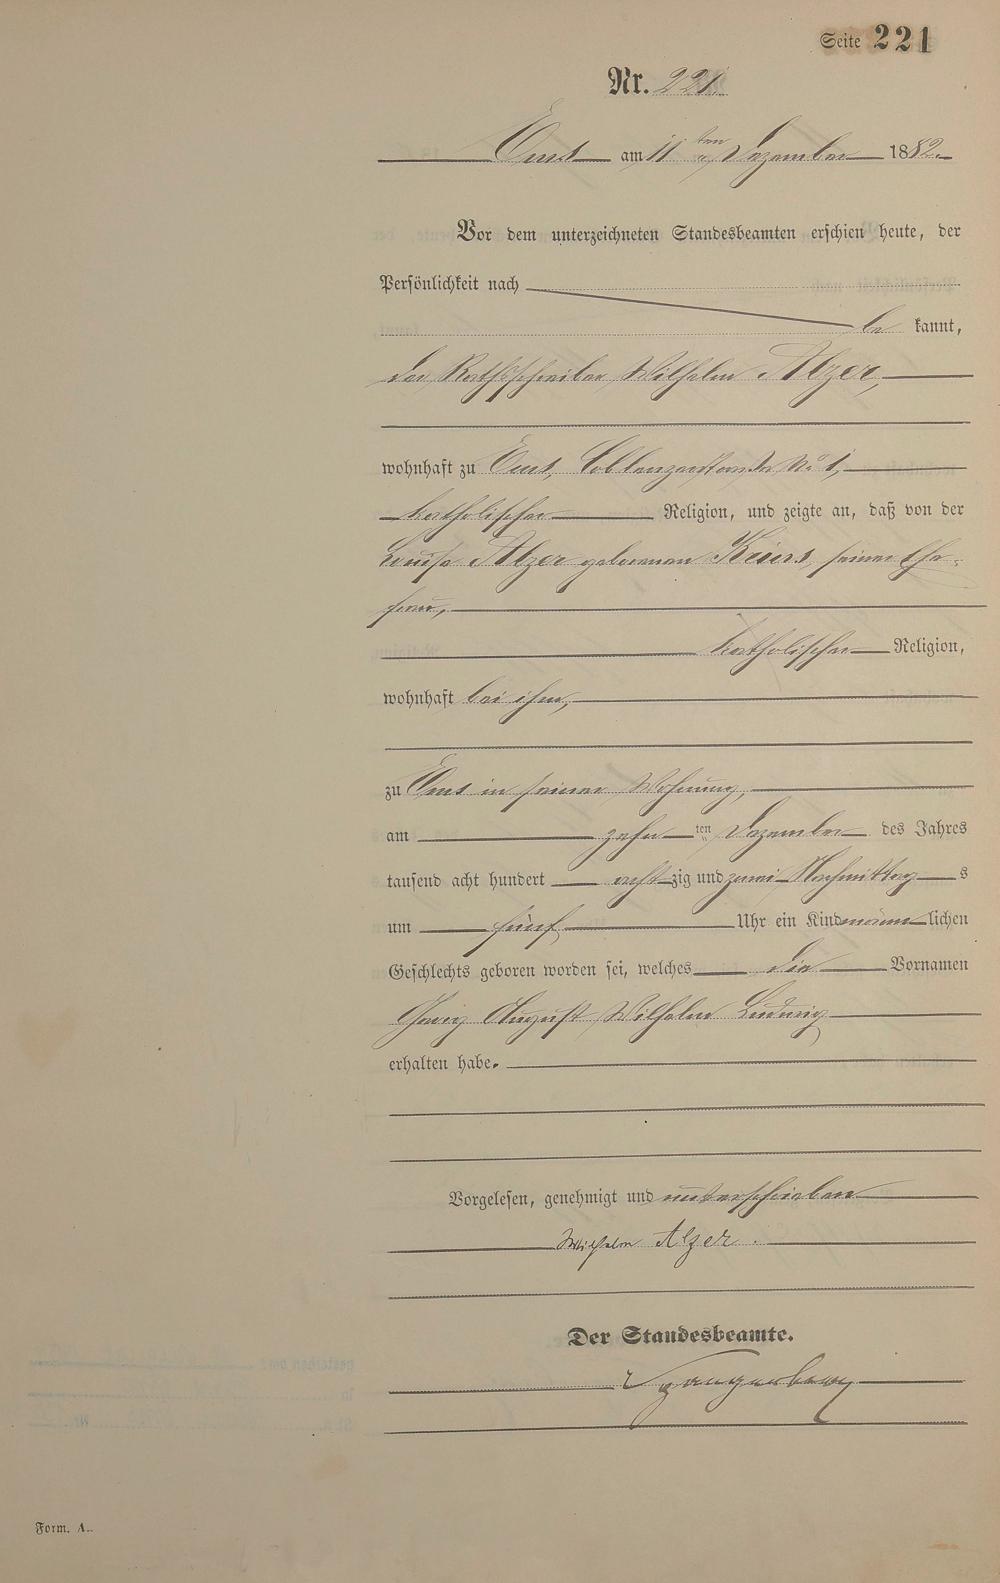 Seite 221
Nr. 221.
Ems am 11 ten Dezember 1882.
Vor dem unterzeichneten Standesbeamten erschien heute, der
Persönlichkeit nach
be kannt,
der Rathsschreiber Wilhelm Alzer,
wohnhaft zu Ems, Coblenzerstraße No 1,
katholischer Religion, und zeigte an, daß von der
Louise Alzer geborenen Keiers, seiner Ehe-
frau,
katholischer Religion,
wohnhaft bei ihm,
zu Ems in seiner Wohnung,
am zehn ten Dezember des Jahres
tausend acht hundert acht zig und zwei Nachmittag s
um fünf Uhr ein Kind männ lichen
Geschlechts geboren worden sei, welches die Vornamen
August Wilhelm Ludwig
erhalten habe.
Vorgelesen, genehmigt und unterschrieben
Wilhelm Alzer.
Der Standesbeamte.
Form. A.